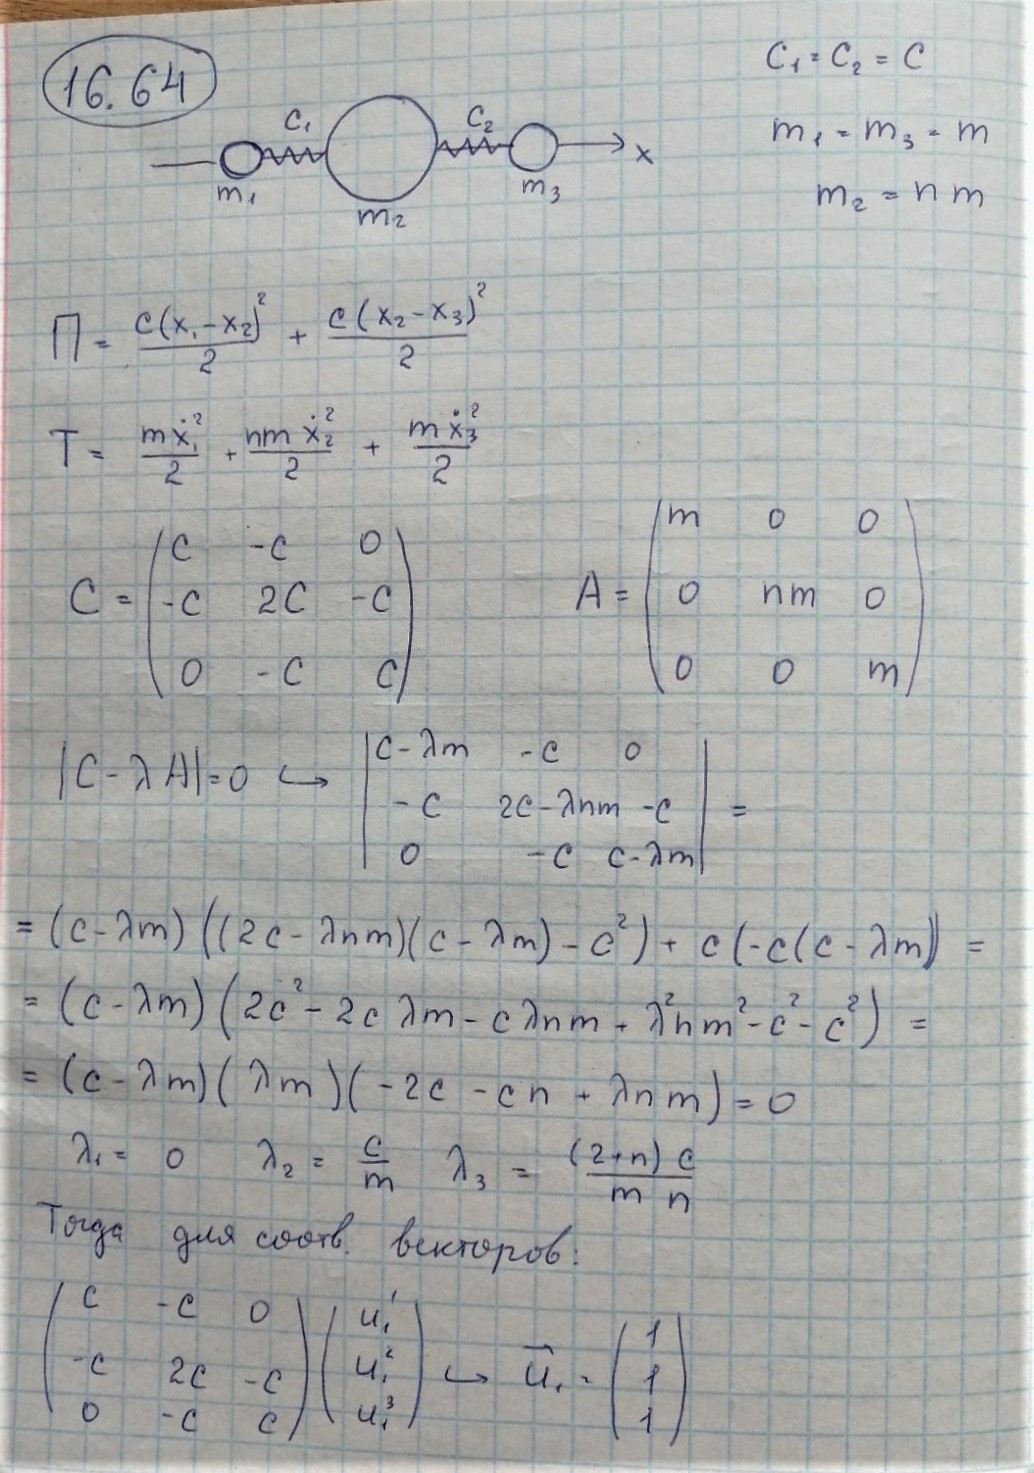 16.64
C₁ = C₂ = C
m₁ = m₃ = m
m₂ = n m
C₁ C₂
x
m₁ m₂ m₃
П = c(x₁ - x₂)²/2 + c(x₂ - x₃)²/2
T = mẋ₁²/2 + nmẋ₂²/2 + mẋ₃²/2
C = (c -c 0
-c 2c -c
0 -c c)
A = (m 0 0
0 nm 0
0 0 m)
|C - λA| = 0 ↪ |c-λm -c 0
-c 2c-λnm -c
0 -c c-λm| =
= (c-λm)((2c-λnm)(c-λm)-c²) + c(-c(c-λm)) =
= (c-λm)(2c² - 2cλm - cλnm + λ²nm² - c² - c²) =
= (c-λm)(λm)(-2c - cn + λnm) = 0
λ₁ = 0 λ₂ = c/m λ₃ = (2+n)c/m n
Тогда для соотв. векторов:
(c -c 0
-c 2c -c
0 -c c) (u₁¹
u₁²
u₁³) ↪ u⃗₁ = (1
1
1)